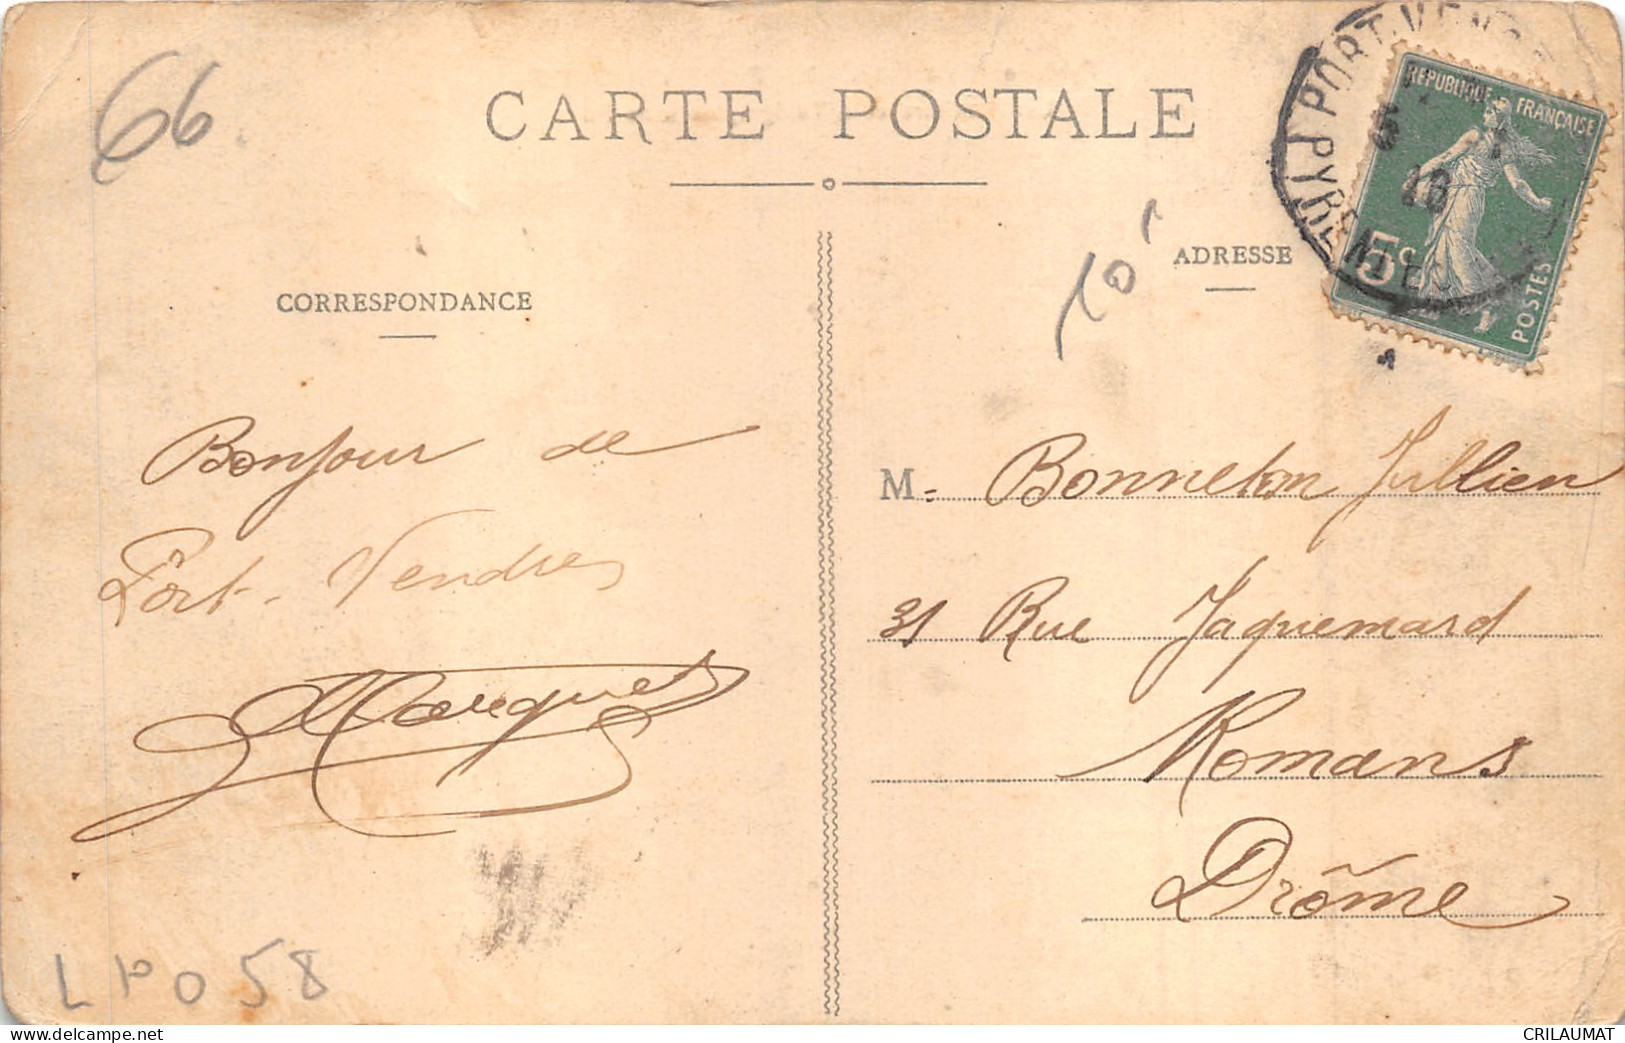 66
CARTE POSTALE
PORT-VEN
PYRENEES
RÉPUBLIQUE FRANÇAISE
5c
POSTES
10
CORRESPONDANCE
ADRESSE
Bonjour de
Port-Vendres
Marquet
M. Bonneton Jullien
31 Rue Jaquemard
Romans
Drôme
LPO 58
www.delcampe.net
CRILAUMAT